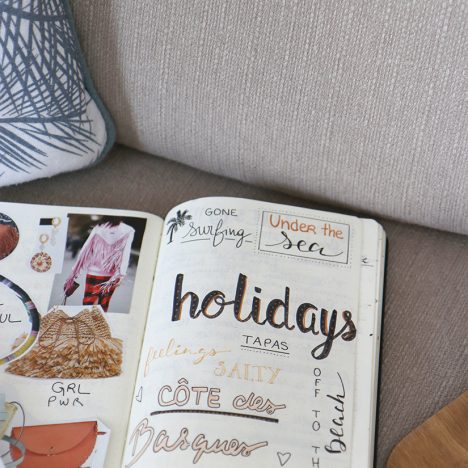 UL
GRL
PWR
GONE
surfing
UNDER THE
sea
holidays
TAPAS
feelings
SALTY
CÔTE des
Basques
OFF TO THE
beach